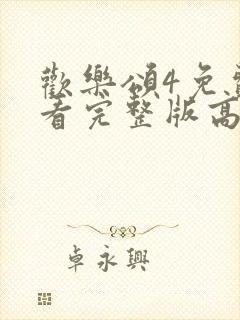 歡樂頌4免費
看完整版高
卓永興